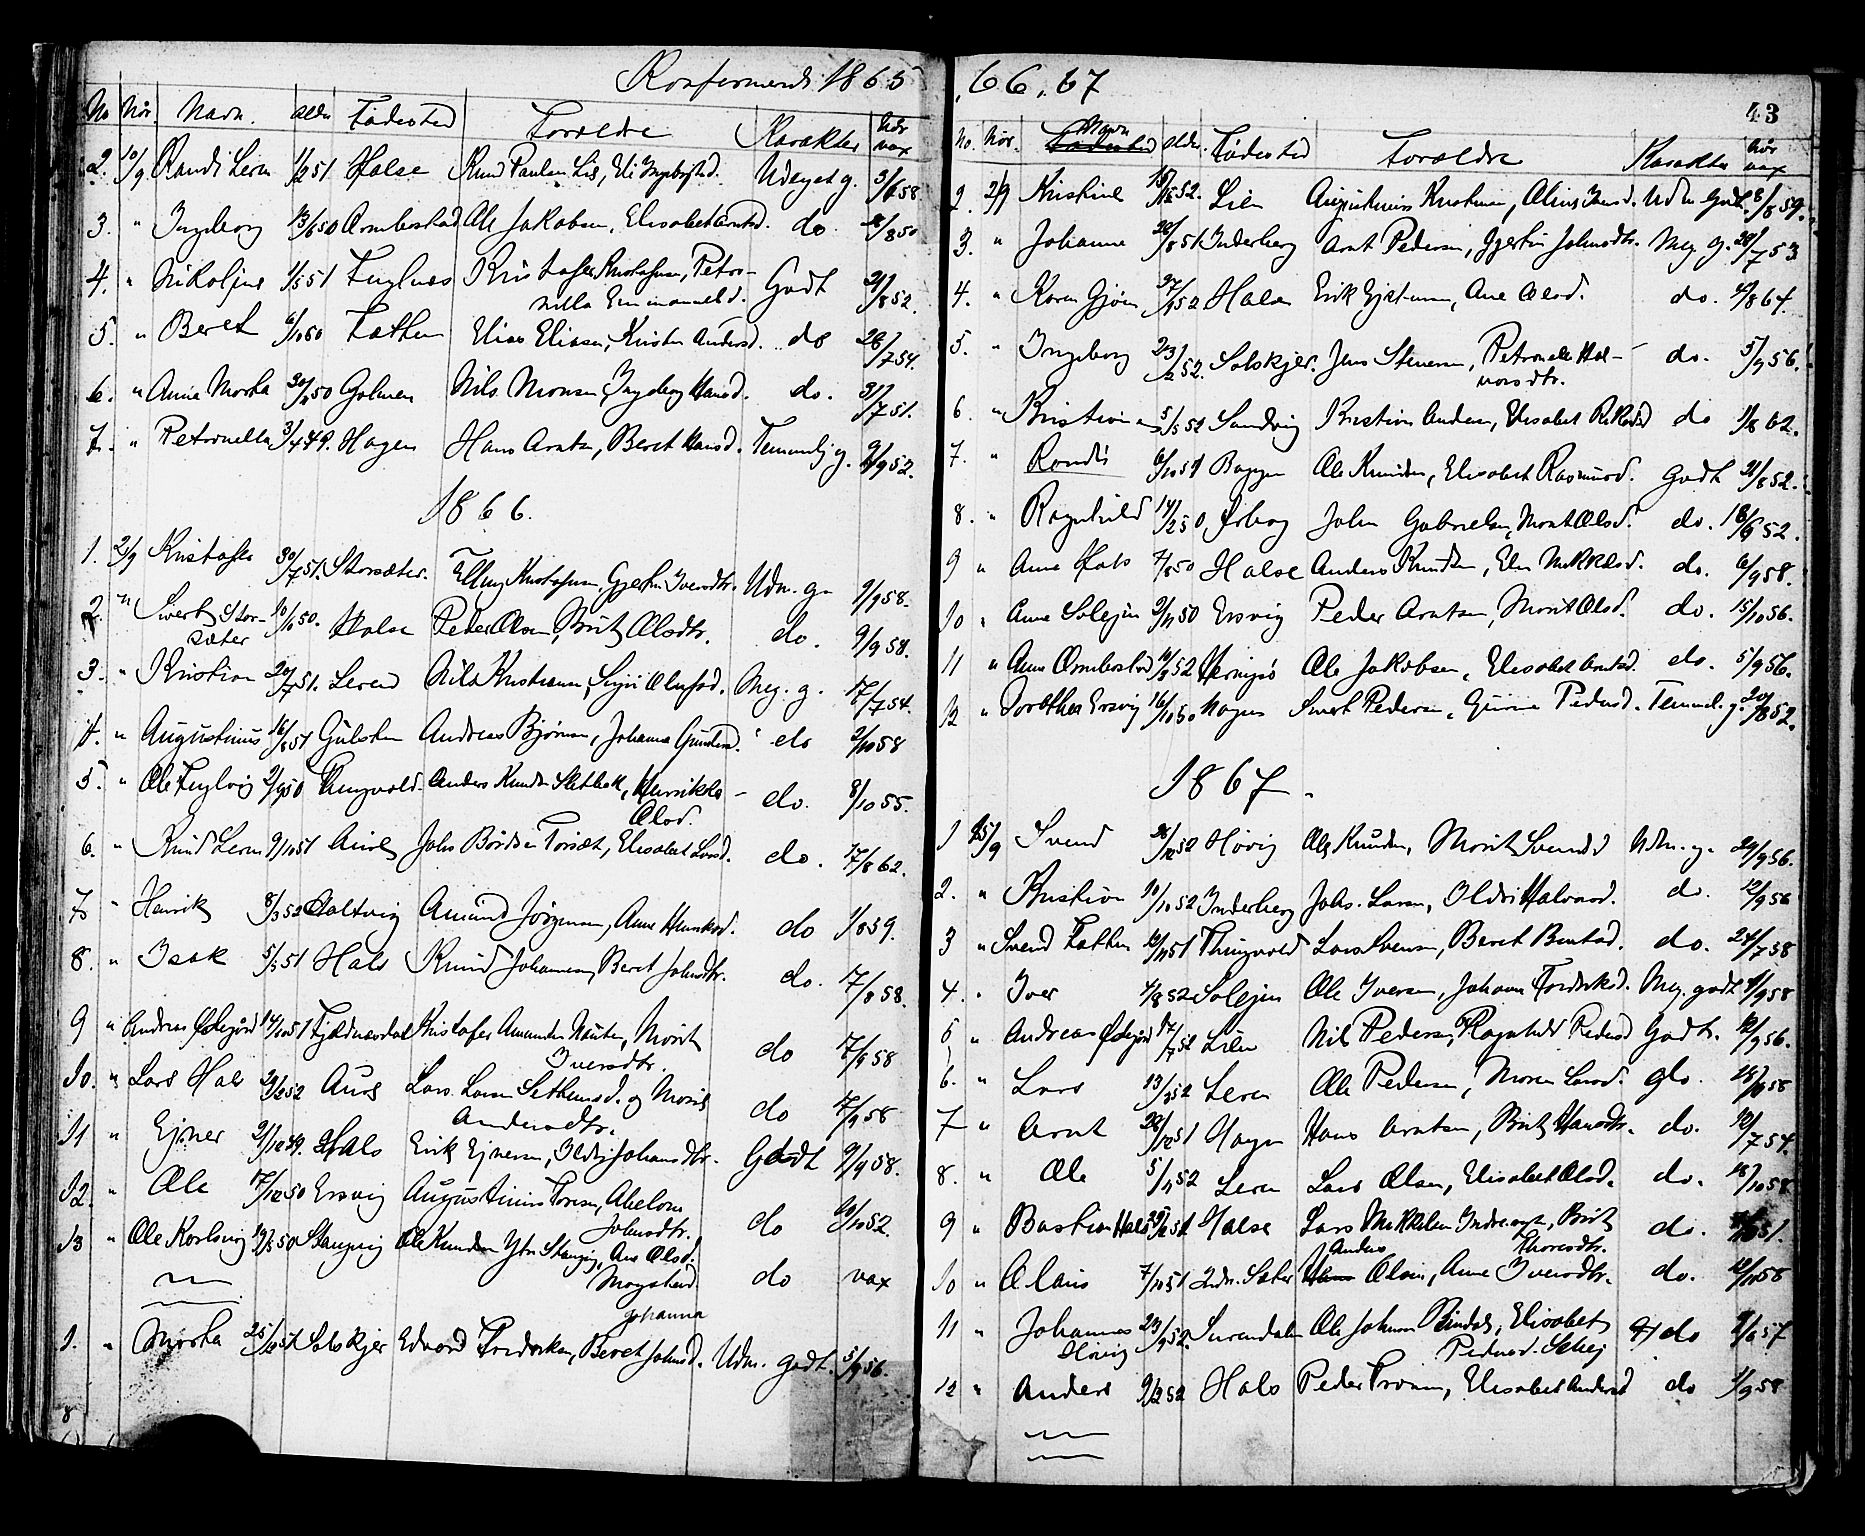 Konfermerede 1865
No Når. Navn. alder Fødested Forældre Karakter Når vax
2. 10/9 Randi Leren 1/2 51 Halse Knud Paulsen Lie, Eli Ingebrigtsd. Udmget g. 3/6 58
3. " Ingeborg 13/6 50 Ormbostad Ole Jakobsen, Elisabet Arntsd. do. /8 50
4. " Nikoline 1/5 51 Fuglnes Kristofer Kristofersen, Petro-
nilla Emanuelsd. Godt 21/8 52.
5. " Beret 6/10 50 Fætten Elias Eliasen, Kirsten Andersd. do 28/7 54.
6. " Anne Marta 30/11 50 Golmen Nils Monsen, Ingeborg Hansd. do. 31/7 51.
7. " Petronella 3/4 49. Hagen Hans Arntsen, Beret Hansd. Temmelig g. 9/9 52.
1866.
1. 2/9 Kristofer 30/7 51. Storsæter. Elling Kristofersen, Gjertru Iversdtr. Udm. g. 9/9 58.
2. " Sivert Stor-
sæter 10/10 50. Halse Peder Olsen, Brit Olsdtr. do. 9/9 58.
3. " Kristian 20/7 51. Leren Nils Kristiansen, Siri Olufsd. Meg. g. 17/7 54.
4. " Augustinus 16/8 51 Gulsten Andreas Bjørnsen, Johanna Gundersd. do 2/10 58
5. " Ole Fuglvig 2/9 50 Tungvold. Anders Knudsen Sletbak, Henrikke
Olsd. do. 8/10 55.
6. " Knud Leren 9/10 51 Aure Johs Bårdsen Torset, Elisabet Larsd. do. 17/8 62.
7 " Henrik 8/3 52 Saltvig Amund Jørgensen, Anne Henriksd. do 1/8 59.
8. " Isak 5/5 51 Hals Knud Johannesen, Beret Johnsdtr. do. 7/8 58.
9 " Andreas Ødegård 14/10 51 Fjeldværdal Kristofer Amundsen Nausten, Marit
Iversdtr. do 7/8 58
10. " Lars Hals 29/2 52 Aure Lars Larsen Settemsd. og Marit
Andersdtr. do 7/9 58
11 " Ejner 21/12 49. Hals Erik Ejnersen, Ildri Johansdtr. Godt 9/9 58.
12. " Ole 17/12 50 Ersvig Augustinus Toresen, Abelone
Johnsdtr. do 30/10 52.
13 " Ole Korsvig 19/3 50 Stangvig Ole Knudsen Ytre Stangvig, Ane Olsd.
Mogstad do vax
1. " Marta 25/10 51 Solskjer Edvard Fredriksen, Beret Johanna Johnsd. Udm. godt. 5/9 56.
8

66. 67
43
No. Når. Navn alder. Fødested Forældre Karakter når vax
2. 2/9 Kristine 15/ 52. Lien Augustinus Kristiansen, Oline Iversd. Udm godt. 8/8 59.
3. " Johanne 20/8 51 Inderberg Arnt Pedersen, Gjertru Johnsdtr. Meg g. 20/7 53
4. " Karen Gjøen 27/9 52 Halsen Erik Ejstensen, Ane Olsd. do. 4/8 64.
5. " Ingeborg 23/2 52. Solskjer. Jens Stenersen, Petronelle Hal-
vorsdtr. do. 5/9 56.
6 " Kristiane 5/5 52 Sandvig Kristian Andersen, Elisabet Rikolsd do 1/8 62.
7. " Randi 6/10 51 Bøggen Ole Knudsen, Elisabet Rasmusd. Godt 21/8 52.
8. " Ragnhild 14/2 50 Ørbog John Gabrielsen, Marit Olsd. do. 18/9 52.
9 " Ane Hals 7/8 50 Halse Anders Knudsen, Elen Mikkelsd. do. 6/9 58.
10 " Anne Solejen 2/11 50 Ersvig Peder Arntsen, Marit Olsd. do. 15/10 56.
11 " Ane Ormbostad 10/9 52 Henningsø Ole Jakobsen, Elisabet Arntsd. do. 5/9 56.
12 " Dorothea Ersvig 16/10 50 Hagen Sivert Pedersen, Guren Pedersd. Temmel. g. 20/8 52.
1867.
1 15/9 Svend 26/12 52 Høvig Ole Knudsen, Marit Svendsd Udm. g. 29/9 56.
2. " Kristian 10/10 52 Inderberg Johs. Larsen, Oldri Halvorsd. do. 12/9 56
3 " Svend Fætten 12/11 51 Tungvold Lars Svensen, Beret Berntsd. do. 24/7 58
4. " Iver 4/8 52 Solejen Ole Iversen, Johanna Fredriksd. Meg. godt 11/9 58
5 " Andreas Ødegård 17/7 52 Lien Nils Pedersen, Ragnhild Pedersd Godt. 12/9 56.
6. " Lars 13/3 52 Leren Ole Pedersen, Maren Larsd. do. 18/10 58
7 " Arnt 28/12 51 Hagen Hans Arntsen, Brit Hansdtr. do. 12/7 54.
8. " Ole 5/11 52 Leren Lars Olsen, Elisabet Olsd. do. 18/10 58
9 " Bastian Hals 30/12 51 Halse Lars Mikkelsen Indreeng, Brit
Thoresdtr. do. 51.
10 " Olaus 7/10 51 Indr. Sæter Anders Olsen, Anne Iversdtr. do. 12/10 58
11 " Johannes
Høvig 23/9 52. Surendalen Ole Johnsen Bindal, Elisabet
Pedersd. Settej do 9/6 57
12 " Anders 9/2 52 Hals Peder Fransen, Elisabet Andersd do 1/9 58